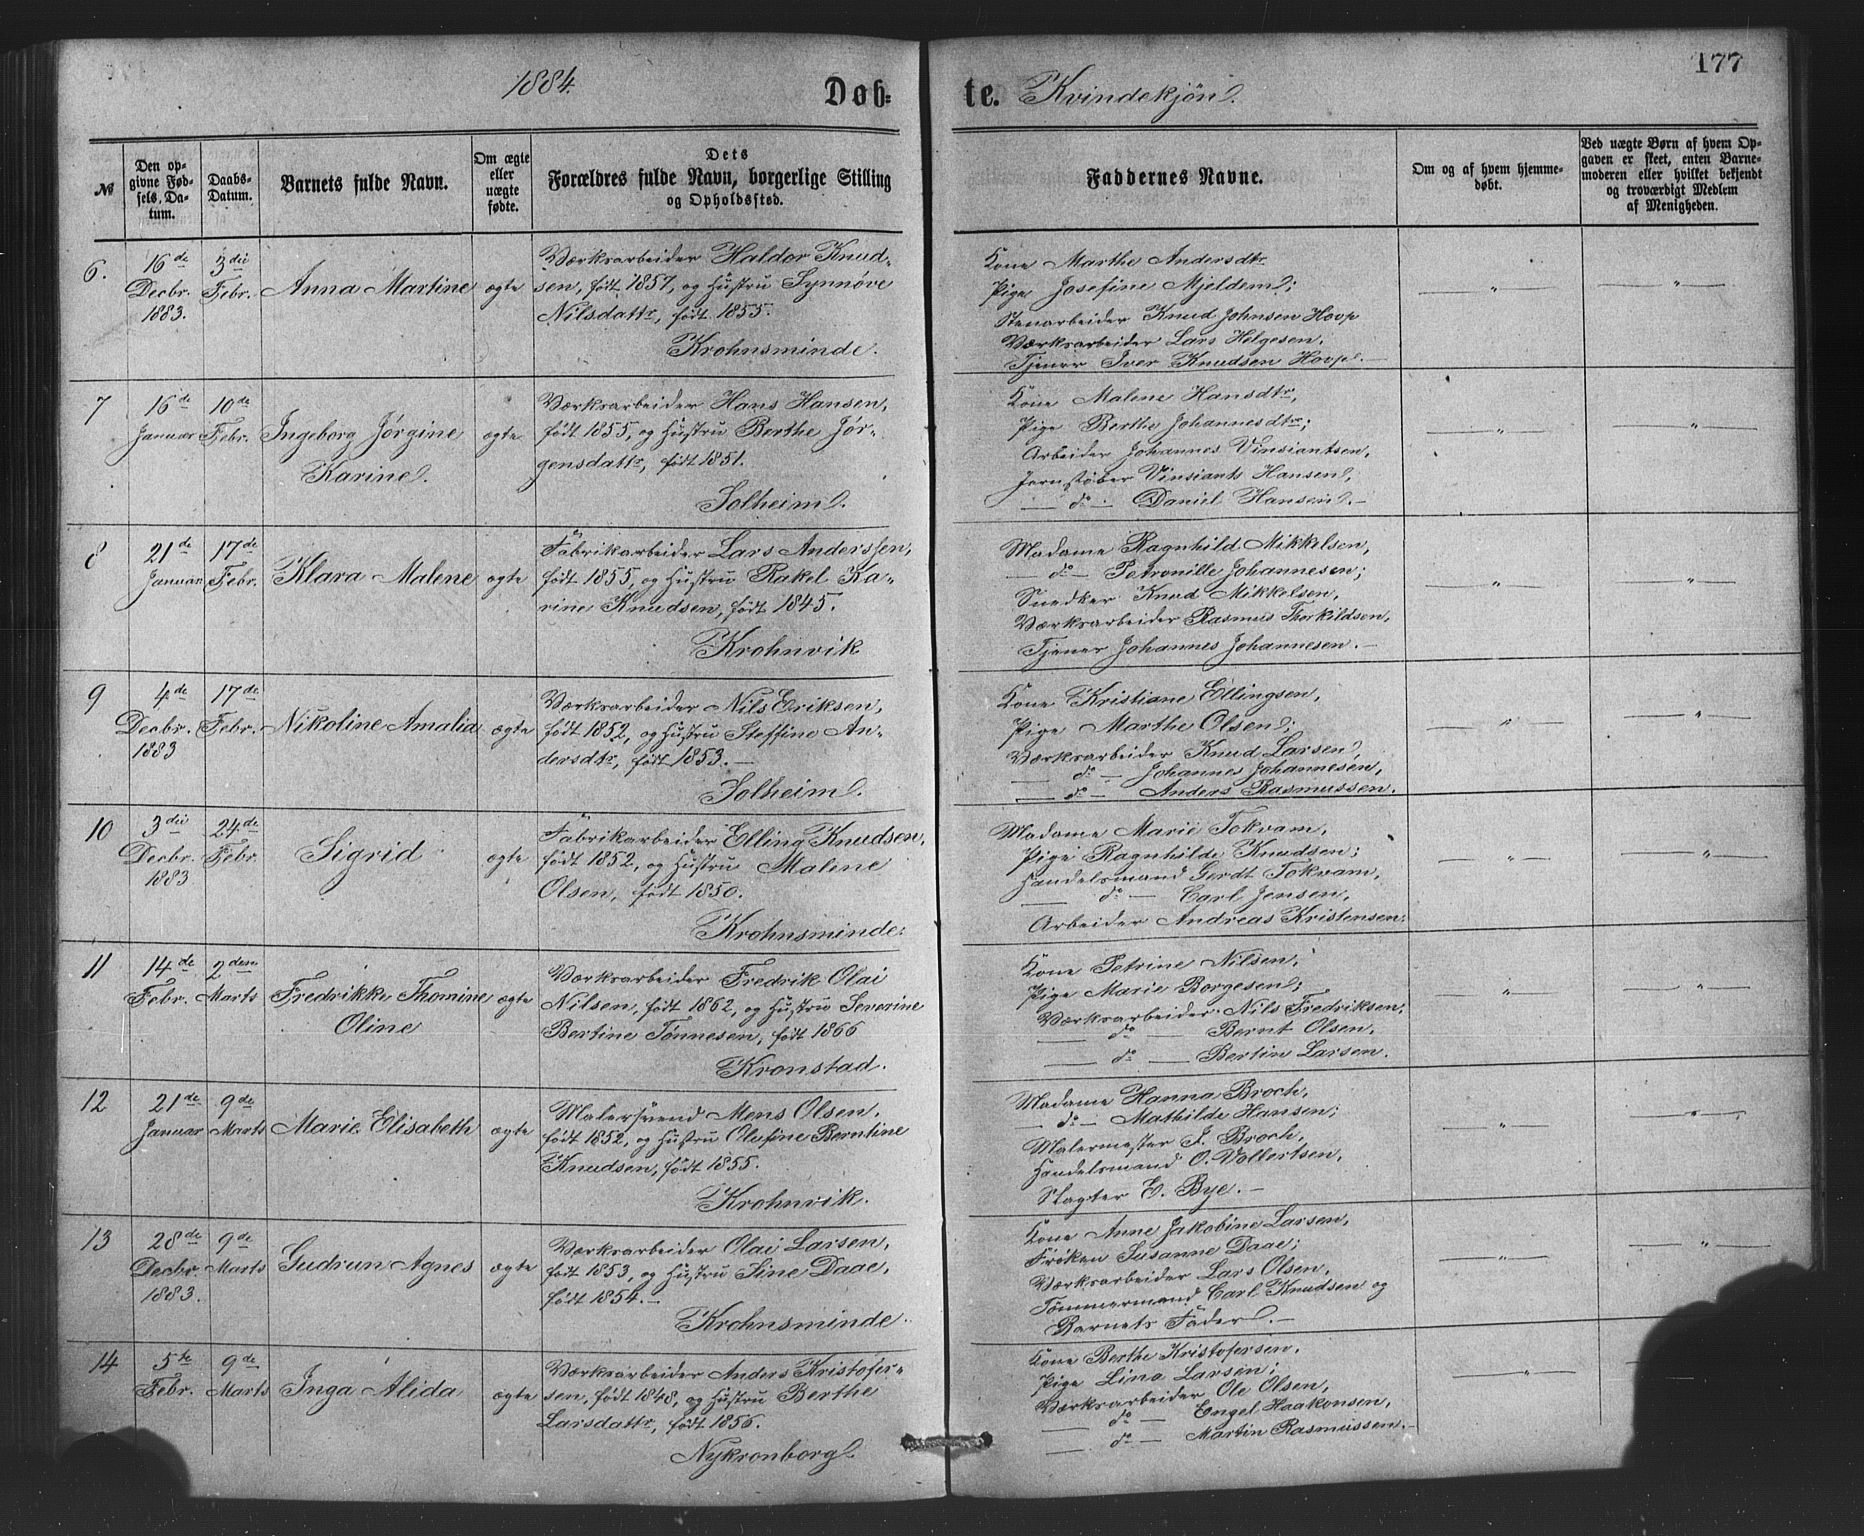 1884.
Døb-
te. Kvindekjøn.
177
№
Den op-
givne Fød-
sels-Da-
tum.
Daabs-
Datum.
Barnets fulde Navn.
Om ægte
eller
uægte
fødte.
Dets
Forældres fulde Navn, borgerlige Stilling
og Opholdssted.
Faddernes Navne.
Om og af hvem hjemme-
døbt.
Ved uægte Børn af hvem Op-
gaven er skeet, enten Barne-
moderen eller hvilket bekjendt
og troværdigt Medlem
af Menigheden.
6.
16de
Decbr.
1883.
3die
Febr.
Anna Martine
ægte
Værksarbeider Haldor Knud-
sen, født 1857, og Hustru Synnøve
Nilsdattr, født 1855.
Krohnsminde.
Kone Marthe Andersdtr
Pige Josefine Mjeldem;
Stenarbeider Knud Johnsen Hovp
Værksarbeider Lars Helgesen,
Tjener Iver Knudsen Hovp.—
— " —
— " —
7
16de
Januar
10de
Febr.
Ingeborg Jørgine
Karine.
ægte
Værksarbeider Hans Hansen,
født 1855, og Hustru Berthe Jør-
gensdattr, født 1851.
Solheim.
Kone Malene Hansdtr,
Pige Berthe Johannesdtr;
Arbeider Johannes Vinsiantsen,
Jernstøber Vinsiants Hansen,
— do — Daniel Hansen.—
— " —
— " —
8
21de
Januar
17de
Febr.
Klara Malene
ægte
Fabrikarbeider Lars Anderssen,
født 1855, og Hustru Rakel Ka-
rine Knudsen, født 1845.
Krohnvik
Madame Ragnhild Mikkelsen,
— do — Petronille Johannesen;
Snedker Knud Mikkelsen,
Værksarbeider Rasmus Thorkildsen,
Tjener Johannes Johannesen.—
— " —
— " —
9
4de
Decbr.
1883
17de
Febr.
Nikoline Amalia
ægte
Værksarbeider Nils Eriksen,
født 1852, og Hustru Steffine An-
dersdtr, født 1853.—
Solheim.
Kone Kristiane Ellingsen,
Pige Marthe Olsen;
Værksarbeider Knud Larsen,
— do — Johannes Johannesen,
— do — Anders Rasmussen.
— " —
— " —
10
3die
Decbr.
1883
24de
Febr.
Sigrid
ægte
Fabrikarbeider Elling Knudsen,
født 1852, og Hustru Malene
Olsen, født 1850.
Krohnsminde.
Madame Marie Tokvam,
Pige Ragnhilde Knudsen;
Handelsmand Gerdt Tokvam,
— do — Carl Jensen,
Arbeider Andreas Kristensen.
— " —
— " —
11
14de
Febr.
2den
Marts
Fredrikke Thomine
Oline
ægte
Værksarbeider Fredrik Olai
Nilsen, født 1862, og Hustru Severine
Bertine Tønnesen, født 1866
Kronstad.
Kone Petrine Nilsen,
Pige Marie Borgesen;
Værksarbeider Nils Fredriksen,
— do — Bernt Olsen,
— do — Bertin Larsen.
— " —
— " —
12
21de
Januar
9de
Marts
Marie Elisabeth
ægte
Malersvend Mons Olsen,
født 1852, og Hustru Olufine Berntine
Knudsen, født 1855.
Krohnvik.
Madame Hanna Broch,
— do — Mathilde Hansen;
Malermester J. Broch,
Handelsmand O. Volbertsen,
Slagter E. Bye.—
— " —
— " —
13
28de
Decbr.
1883.
9de
Marts
Gudrun Agnes
ægte
Værksarbeider Olai Larsen,
født 1853, og Hustru Sine Daae,
født 1854.—
Krohnsminde.
Kone Anne Jakobine Larsen,
Frøken Susanne Daae;
Værksarbeider Lars Olsen,
Tømmermand Carl Knudsen og
Barnets Fader.—
— " —
— " —
14
5te
Febr.
9de
Marts
Inga Alida
ægte
Værksarbeider Anders Kristofer-
sen, født 1848, og Hustru Berthe
Larsdattr, født 1856.
Nykronborg.
Kone Berthe Kristofersen,
Pige Lina Larsen;
Værksarbeider Ole Olsen,
— do — Engel Haakonsen,
— do — Martin Rasmussen.—
— " —